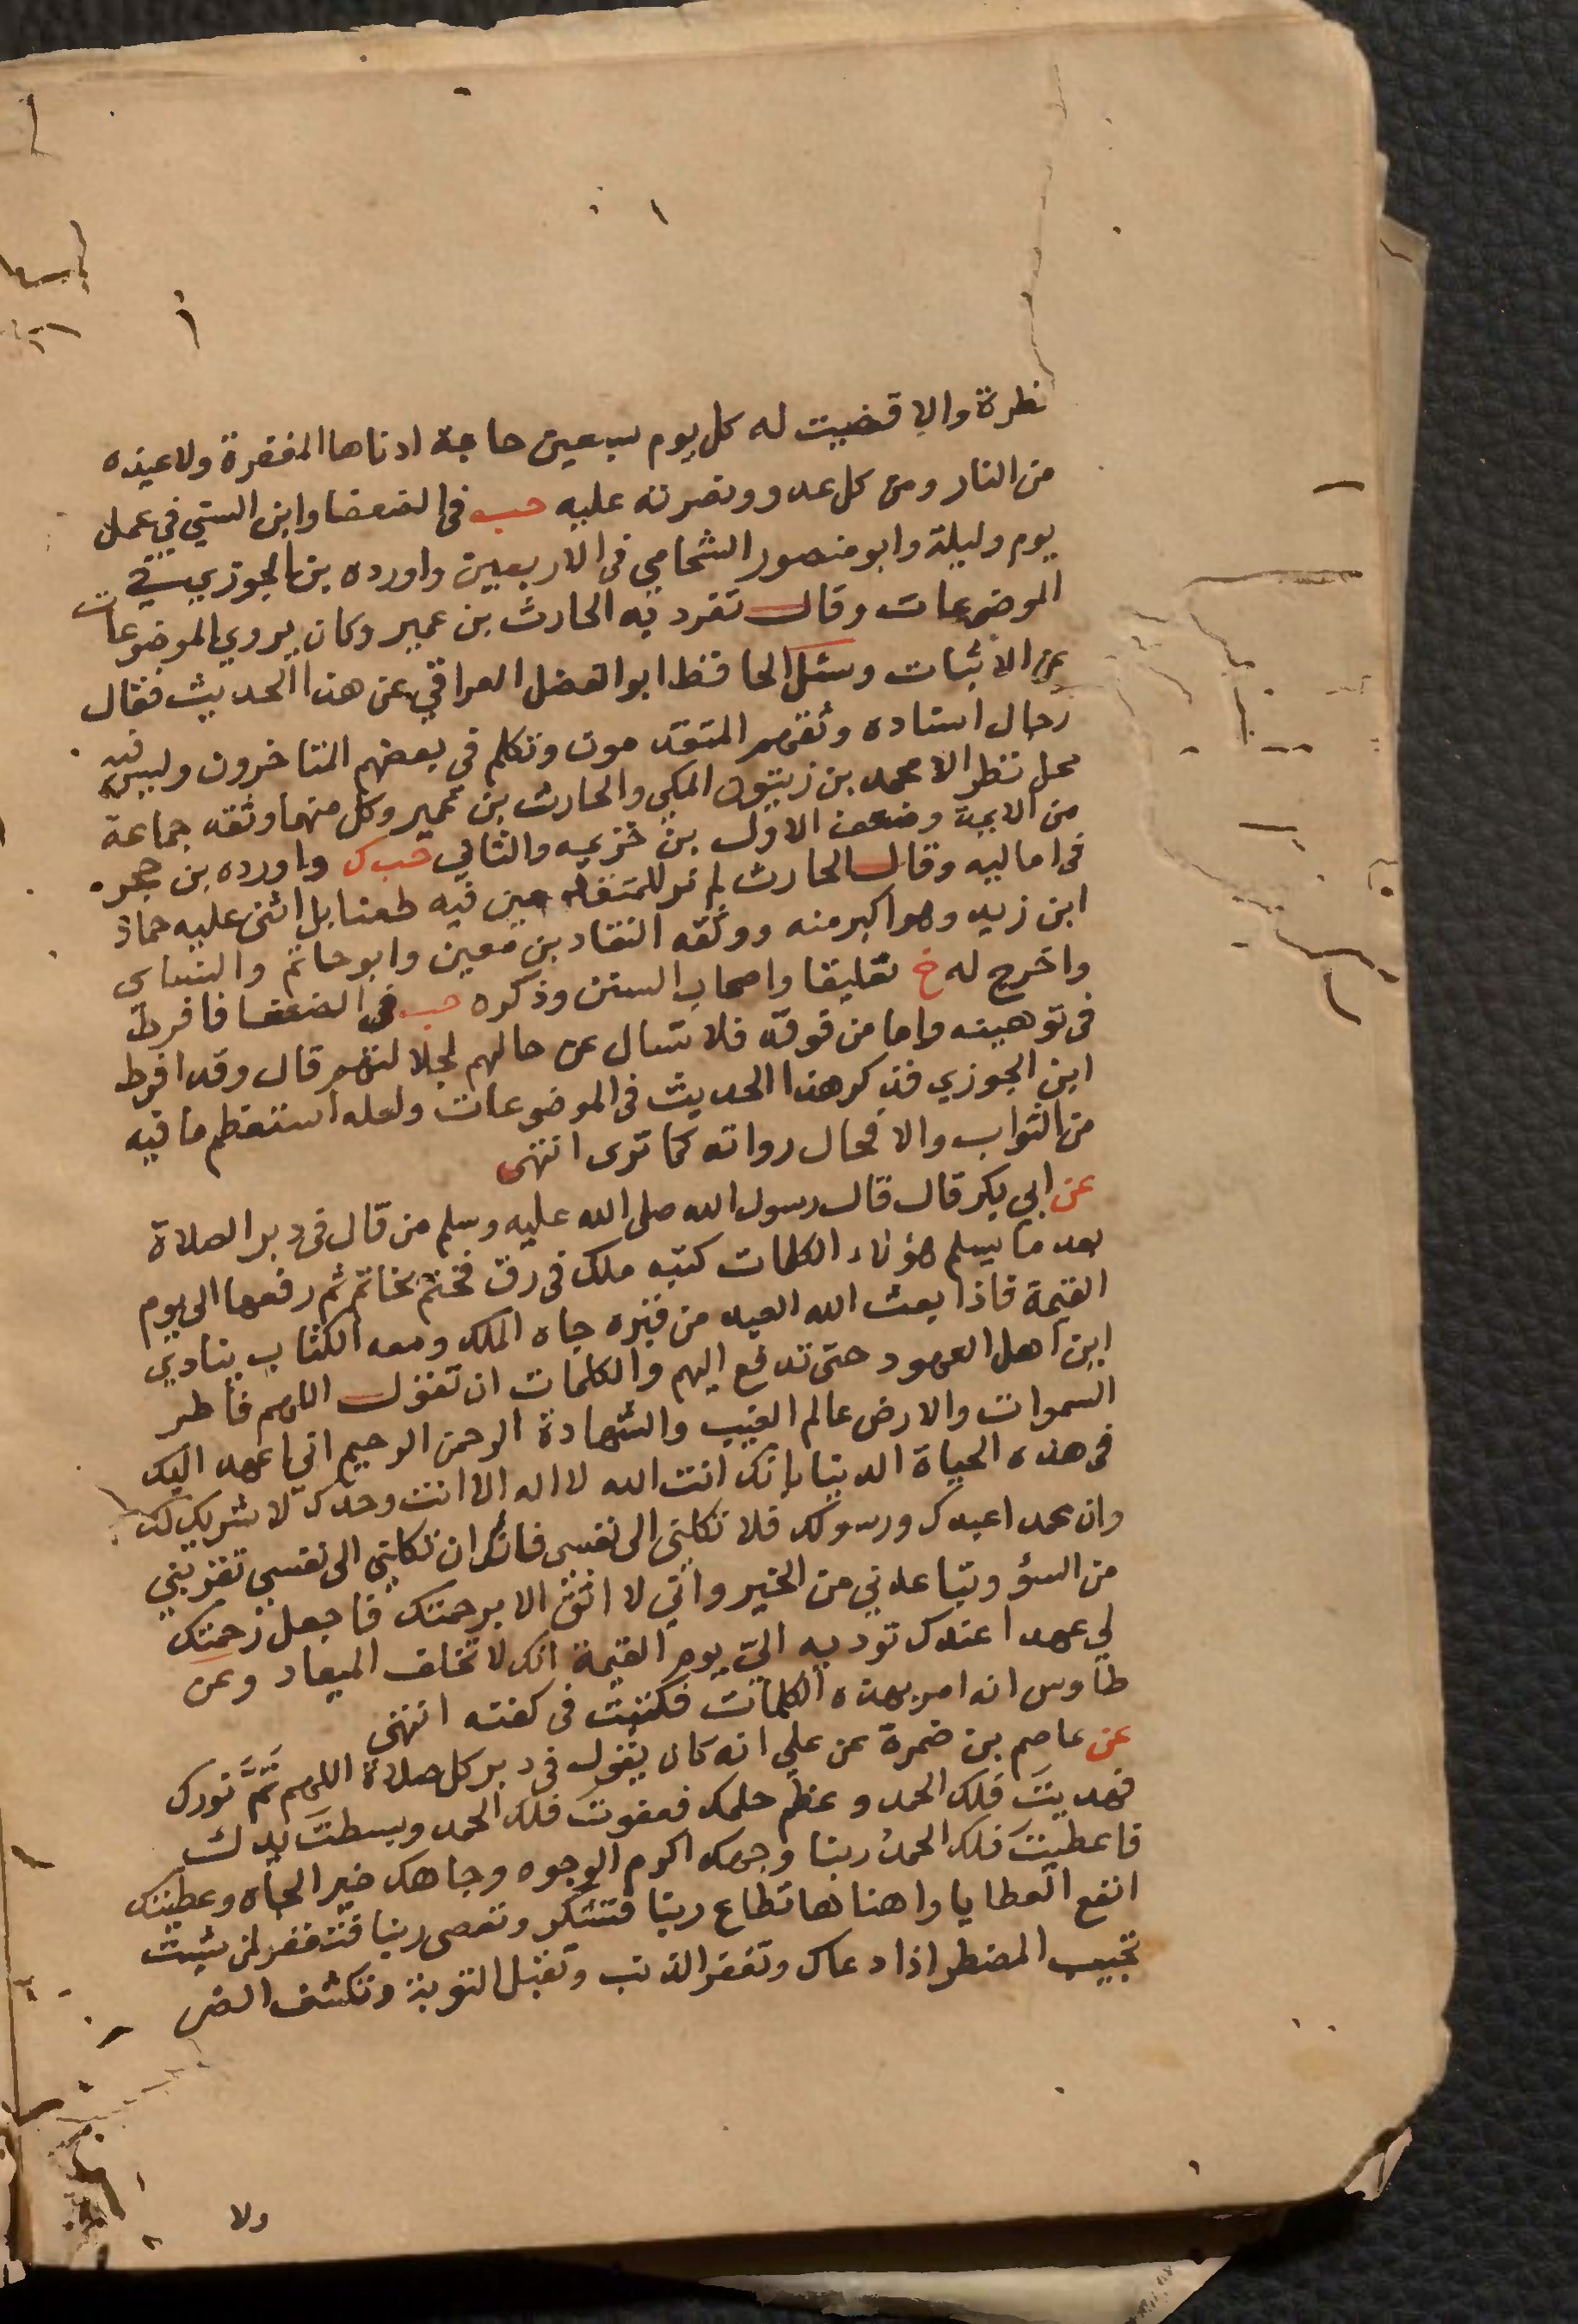 نظرة والا قضيت له كل يوم سبعين حاجة ادناها المغفرة ولاعيذه
من النار ومن كل عدو ونصرته عليه حب فى الضعفا وابن السني في عمل
يوم وليلة وابو منصور الشحامي فى الاربعين واورده بن الجوزي في
الموضوعات وقال تفرد به الحارث بن عمير وكان يروي الموضوعات
عن الاثبات وسئل الحافظ ابو الفضل العراقي عن هذا الحديث فقال
رجال اسناده وثقهم المتقدمون وتكلم في بعضهم المتاخرون وليس فيه
محل نظر الا محمد بن زنبور المكي والحارث بن عمير وكل منهما وثقه جماعة
من الايمة وضعف الاول بن خزيمه والثاني حب ك واورده بن حجر
فى اماليه وقال الحارث لم نر للمتقدمين فيه طعنا بل اثنى عليه حماد
ابن زيد وهو اكبر منه ووثقه النقاد بن معين وابو حاتم والنساى
واخرج له خ تعليقا واصحاب السنن وذكره حب فى الضعفا فافرط
فى توهينه واما من فوقه فلا تسال عن حالهم لجلالتهم قال وقد افرط
ابن الجوزي فذكر هذا الحديث فى الموضوعات ولعله استعظم ما فيه
من الثواب والا فحال رواته كما ترى انتهى
عن ابي بكر قال قال رسول الله صلى الله عليه وسلم من قال فى دبر الصلاة
بعد ما يسلم هؤلاء الكلمات كتبه ملك فى رق فختم بخاتم ثم رفعها الى يوم
القيمة فاذا بعث الله العبد من قبره جاه الملك ومعه الكتاب ينادي
اين اهل العهود حتى تدفع اليهم والكلمات ان تقول اللهم فاطر
السموات والارض عالم الغيب والشهادة الرحمن الرحيم اني اعهد اليك
فى هذه الحياة الدنيا بانك انت الله لا اله الا انت وحدك لا شريك لك
وان محمدا عبدك ورسولك فلا تكلني الى نفسي فانك ان تكلني الى نفسي تقربني
من السؤ وتباعدني من الخير واني لا اثق الا برحمتك فاجعل رحمتك
لي عهدا عندك توديه الي يوم القيمة انك لا تخلف الميعاد وعن
طاوس انه امر بهذه الكلمات فكتبت فى كفنه انتهى
عن عاصم بن ضمرة عن علي انه كان يقول فى دبر كل صلاة اللهم تَمَّ نورك
فهديتَ فلك الحمد وعظم حلمك فعفوت فلك الحمد وبسطتَ يدك
فاعطيتَ فلك الحمدُ ربنا وجهك اكرم الوجوه وجاهك خير الجاه وعطيتك
انفع العطايا واهناها تطاع ربنا فتشكر وتعصى ربنا فتغفر لمن شيت
تجيب المضطر اذا دعاك وتغفر الذنب وتقبل التوبة وتكشف الضر
ولا